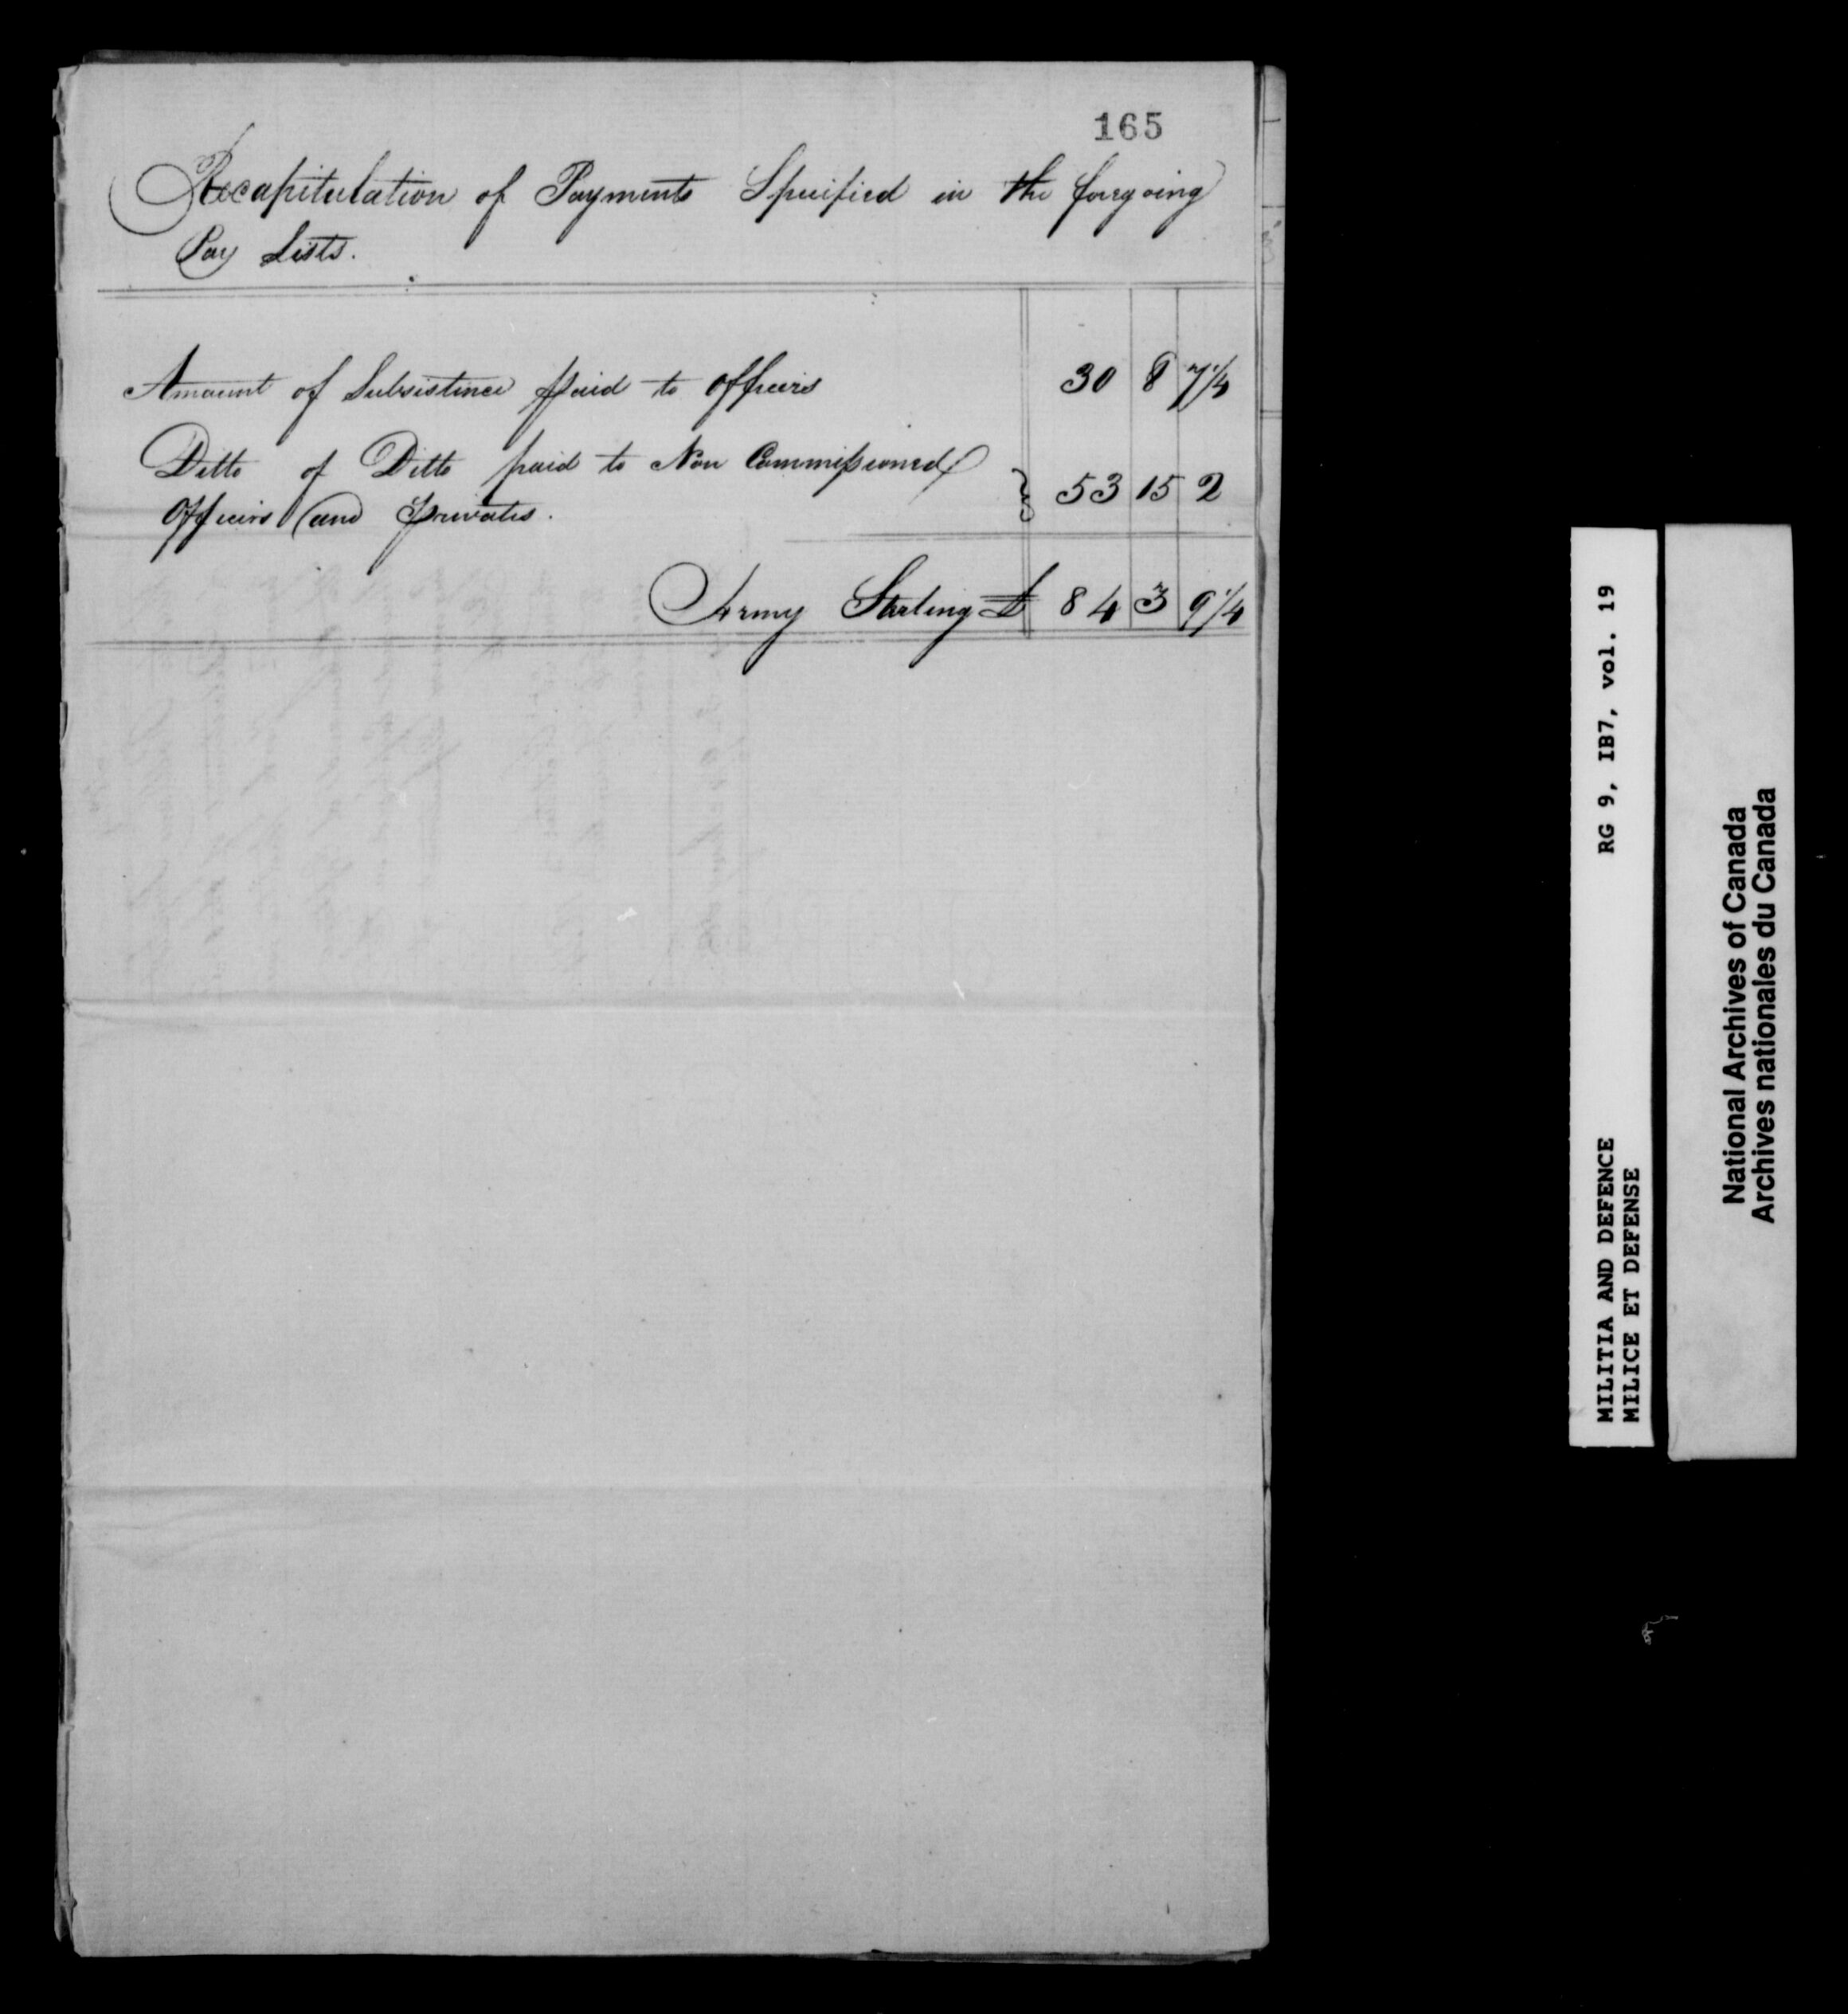 165
Recapitulation of Payments Specified in the foregoing
Pay Lists.
Amount of Subsistence paid to Officers 30 8 7 1/4
Ditto of Ditto paid to Non Commissioned
Officers and Privates. 53 15 2
Army Starling £ 84 3 9 1/4
RG 9, IB7, vol. 19
MILITIA AND DEFENCE
MILICE ET DEFENSE
National Archives of Canada
Archives nationales du Canada